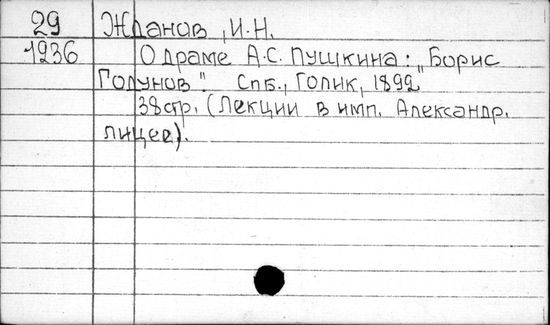 29 Жданов, И.Н.
1936 О драме А.С. Пушкина: „Борис
Годунов". Спб., Голик, 1892
38стр. (Лекции в имп. Александр.
лицее).